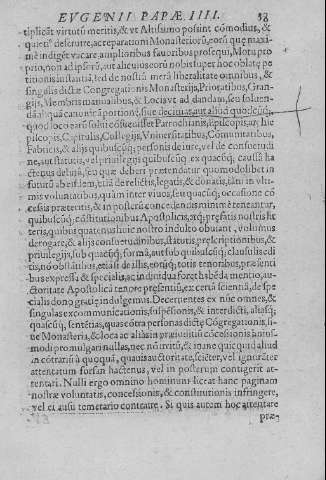 EVGENII PAPÆ IIII. 53
tiplicāt virtutū meritis, & vt Altissimo possint cōmodius, &
quieti⁹ deseruire, ac reparationi Monasteriorū, eorū quę maxi
mè indigēt vacare amplioribus fauoribus prosequi, Motu pro
prio, non ad ipsorū, aut alicuius eorū nobis super hoc oblatę pe
titionis instantiā, sed de nostra mera liberalitate omnibus, &
singulis dictæ Congregationis Monasterijs, Prioratibus, Gran-
gijs, Membris manualibus, & Locis vt ad dandam, seu soluen-
dā aliquā canonicā portionē, siue decimā, aut aliud quodcūq;
quod loco earū solui cōsueuisset Parrochianis, Episcopis, Archie
piscopis, Capitulis, Collegijs, Vniuersitatibus, Cōmunitatibus,
Fabricis, & alijs quibuscūq; personis de iure, vel de consuetudi
ne, aut statutis, vel priuilegijs quibuscūq; ex quacūq; causa ha
ctenus deinde, eo quæ deberi prætendatur quomodolibet in
futurū ab eisdem, etiā de relictis, legatis, & donatis, tàm in vlti-
mis voluntatibus, quàm inter viuos, seu quacūq; occasione cō
cessis præteritis, & in posterū concedendis minimè teneantur,
quibuscūq; cōstitutionibus Apostolicis, atq; præsatis nostris lit
teris, quibus quatenus huic nostro indulto obuiant, volumus
derogare, & alijs consuetudinibus, statutis, præscriptionibus, &
priuilegijs, sub quacūq; formā, aut sub quibuscūq; clausulis edi
tis, nō obstātibus, etiā si de illis, eorūq; totis tenoribus, præsenti
bus expressa & specialis, ac indiuidua foret habēda mentio, au-
ctoritate Apostolica tenore præsentiū, ex certa scientia, de spe
cialis dono gratię indulgemus. Decernentes ex nūc omnes, &
singulas excommunicationis, suspēsionis, & interdicti, aliasq;
quascūq; sentētias, quas cōtra personas dictę Cōgregationis, si
ue Monasterij, & loca ac alias in præiudiciū cōcessionis huius
modi promulgari nullas, nec nō irritū, & inane quicquid aliud
in cōtrariū à quoquā, quauis auctoritate, sciēter, vel ignorāter
attentatum forsan hactenus, vel in posterum contigerit at-
tentari. Nulli ergo omnino hominum liceat hanc paginam
nostræ voluntatis, concessionis, & constitutionis infringere,
vel ei ausu temerario contraire. Si quis autem hoc attentare
præ-